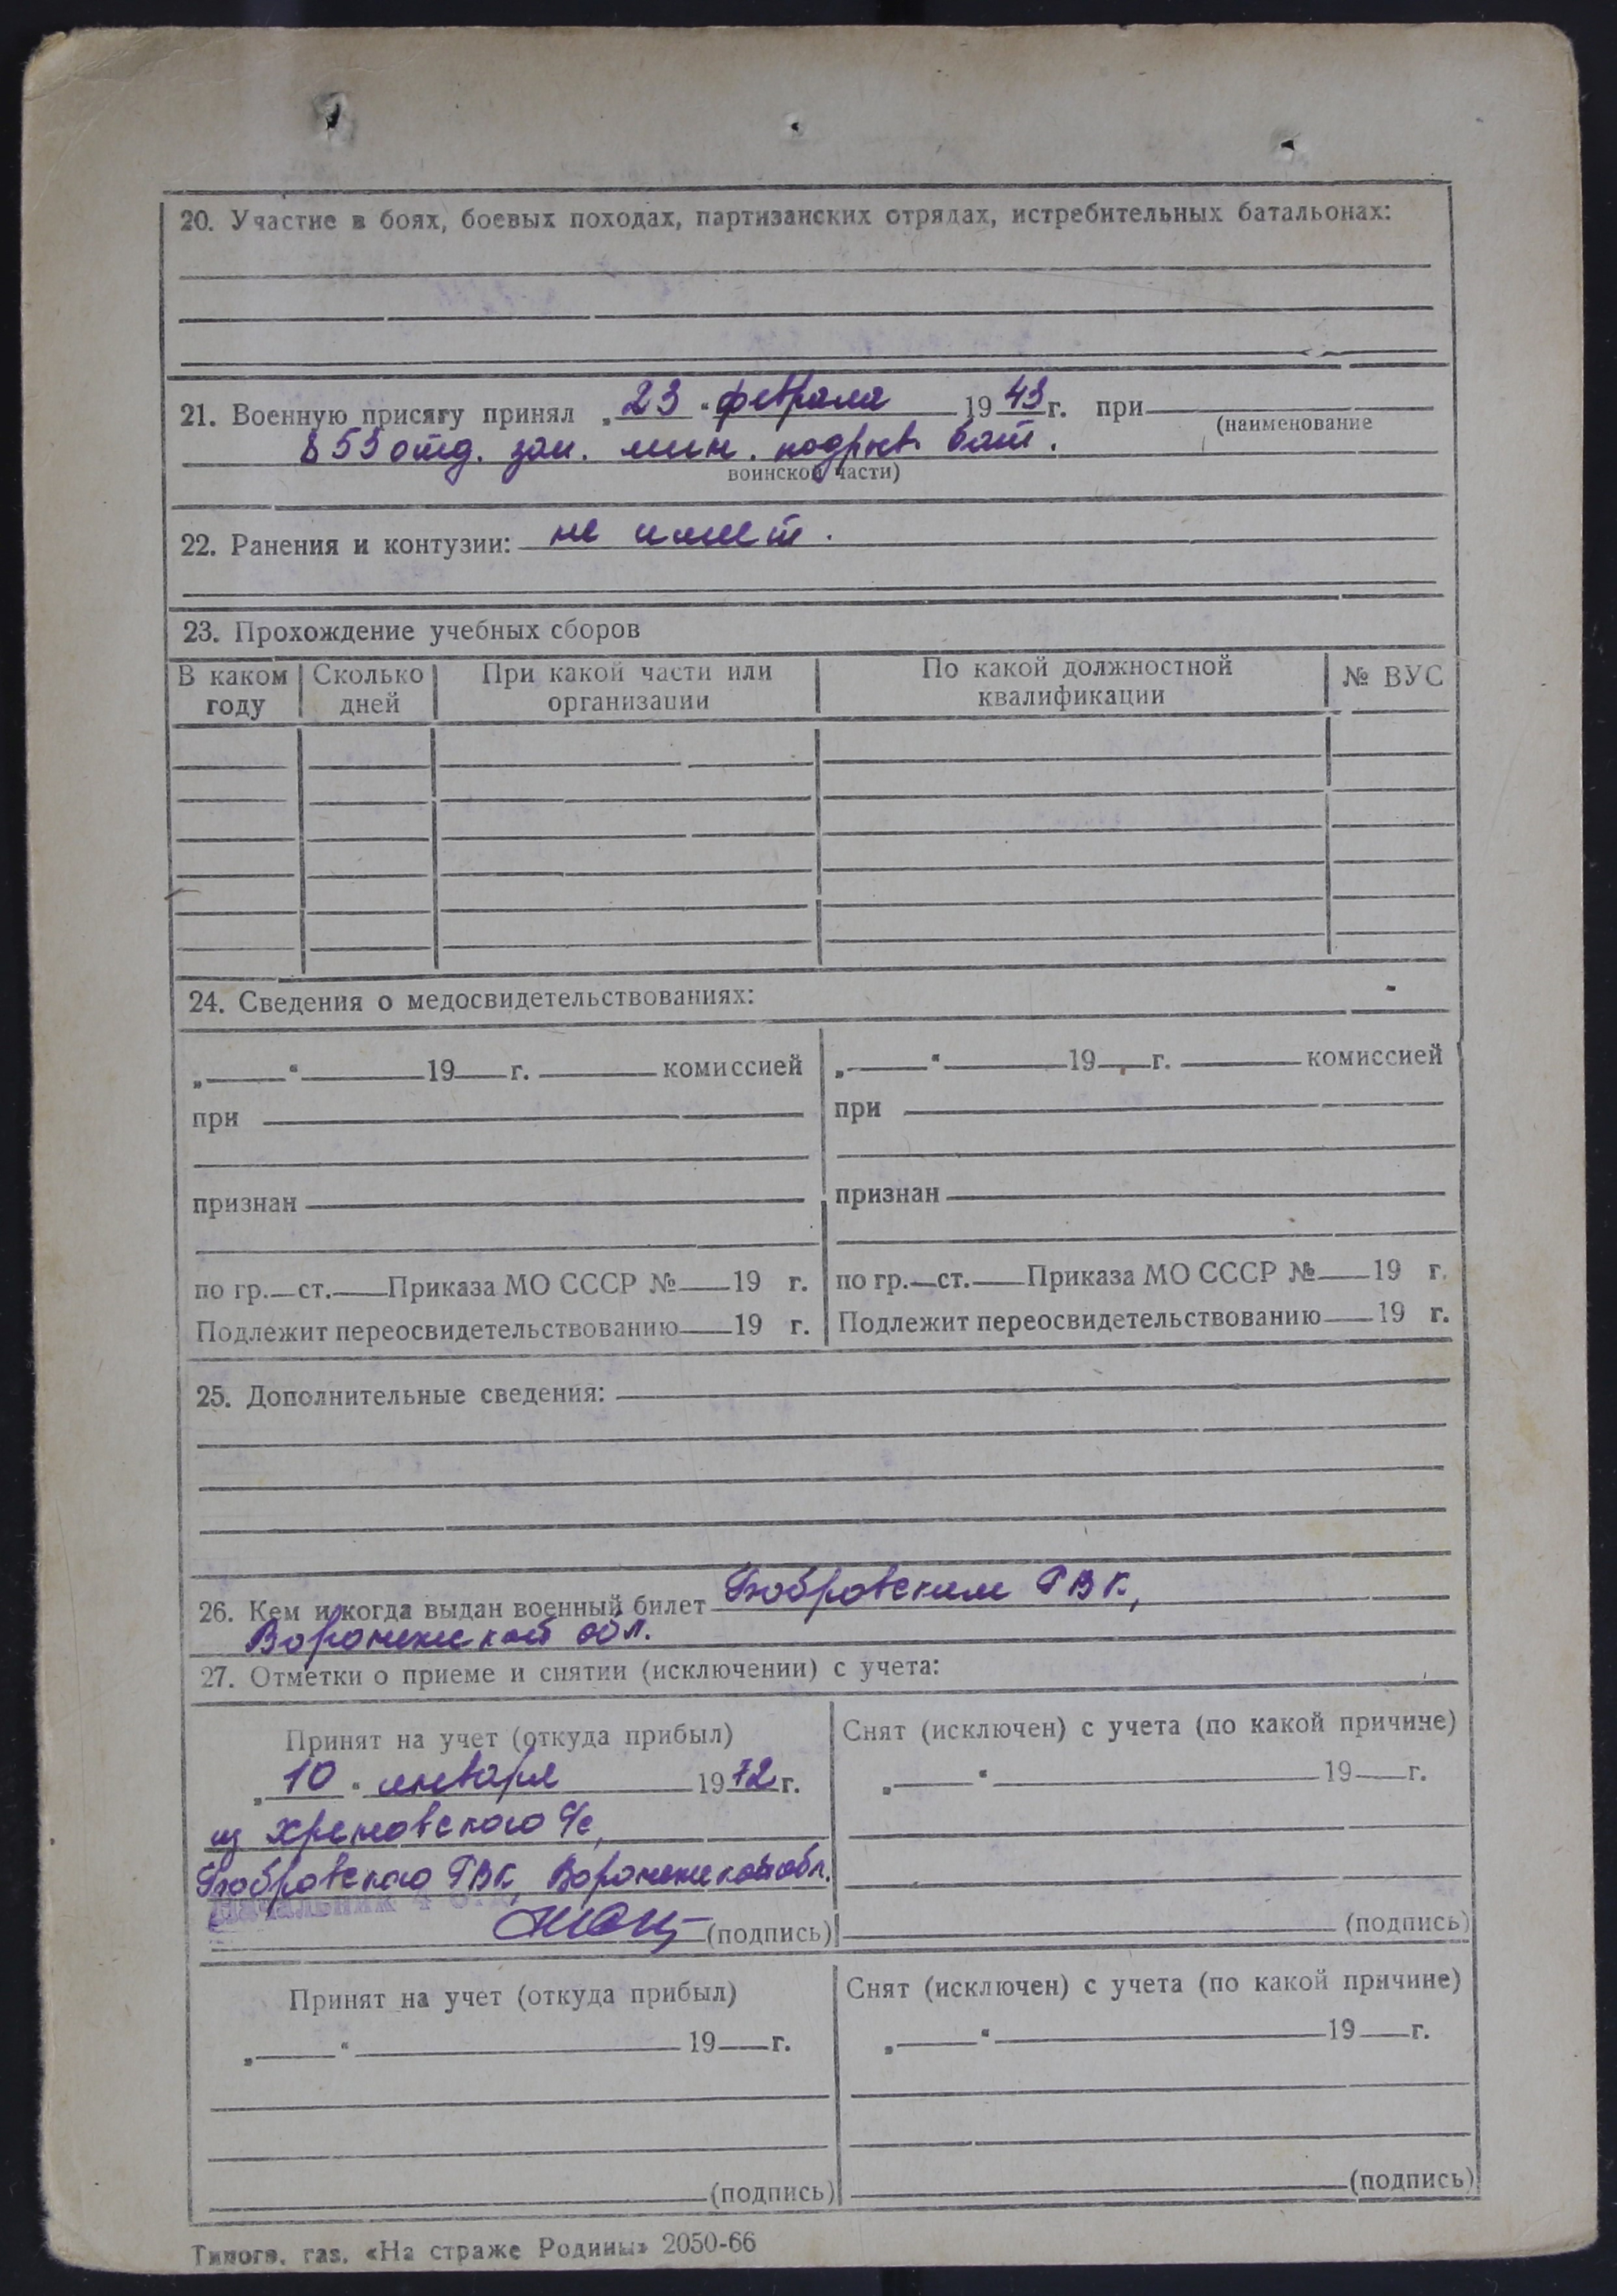 20. Участие в боях, боевых походах, партизанских отрядах, истребительных батальонах:
21. Военную присягу принял „23“ февраля 1943 г. при
(наименование
853 отд. зап. мин. подрыв. бат.
воинской части)
22. Ранения и контузии: не имеет.
23. Прохождение учебных сборов
В каком году Сколько дней При какой части или организации По какой должностной квалификации № ВУС
24. Сведения о медосвидетельствованиях:
„ “ 19 г. комиссией
при
признан
по гр. ст. Приказа МО СССР № 19 г.
Подлежит переосвидетельствованию 19 г.
„ “ 19 г. комиссией
при
признан
по гр. ст. Приказа МО СССР № 19 г.
Подлежит переосвидетельствованию 19 г.
25. Дополнительные сведения:
26. Кем и когда выдан военный билет Бобровским РВК,
Воронежской обл.
27. Отметки о приеме и снятии (исключении) с учета:
Принят на учет (откуда прибыл)
„10“ января 1972 г.
из Хреновского с/с,
Бобровского РВК, Воронежской обл.
Начальник 4
(подпись)
Снят (исключен) с учета (по какой причине)
„ “ 19 г.
(подпись)
Принят на учет (откуда прибыл)
„ “ 19 г.
(подпись)
Снят (исключен) с учета (по какой причине)
„ “ 19 г.
(подпись)
Типогр. газ. «На страже Родины» 2050-66